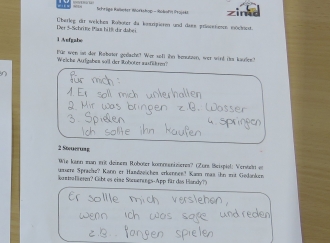 Schräge Roboter Workshop – RoboFit Projekt
ZIMD
Überleg dir welchen Roboter du konzipieren und dann präsentieren möchtest.
Der 5-Schritte Plan hilft dir dabei.
1 Aufgabe
Für wen ist der Roboter gedacht? Wer soll ihn benutzen, wer wird ihn kaufen?
Welche Aufgaben soll der Roboter ausführen?
Für mich:
1. Er soll mich unterhalten
2. Mir was bringen z.B. Wasser
3. Spielen 4. springen
Ich sollte ihn kaufen
2 Steuerung
Wie kann man mit deinem Roboter kommunizieren? (Zum Beispiel: Versteht er
unsere Sprache? Kann er Handzeichen erkennen? Kann man ihn mit Gedanken
kontrollieren? Gibt es eine Steuerungs-App für das Handy?)
Er sollte mich verstehen,
wenn ich was sage und reden
z.B. fangen spielen